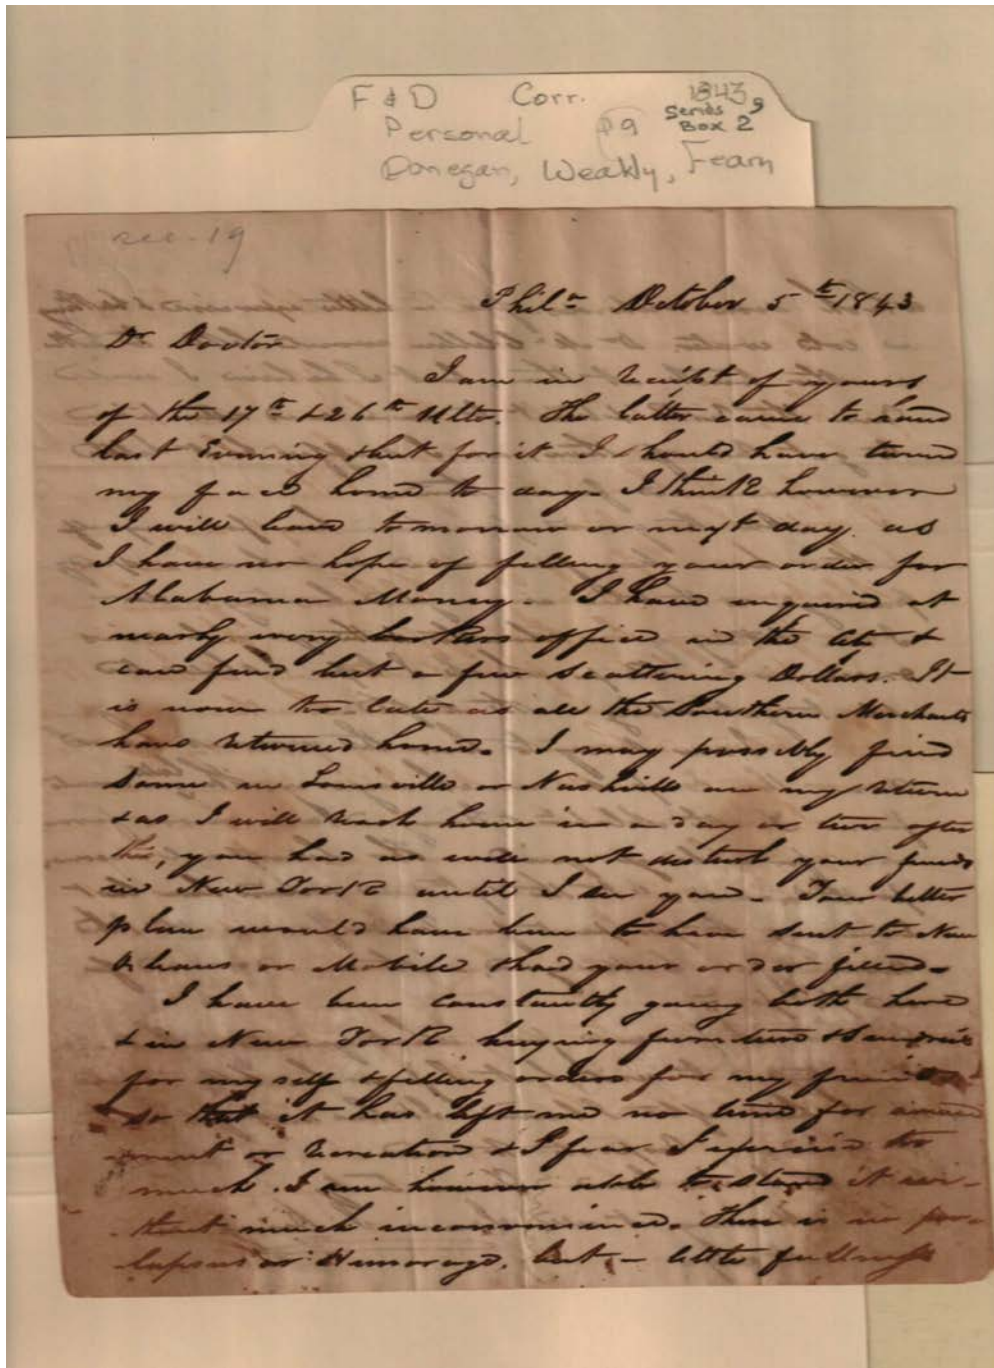 F & D Corr. 1843
Personal P9 Series 9
Box 2
Donegan, Weakly, Fearn
rec. 19
Phila October 5th 1843
Dr Doctor
I am in receipt of yours
of the 17th & 26th Ulto. The latter came to hand
last Evening & but for it I should have turned
my face home to day. I think however
I will leave tomorrow or next day. as
I have no hope of filling your order for
Alabama Money. I have enquired at
nearly every brokers office in the city &
can find but a few scattering Dollars. It
is now too late as all the Southern Merchants
have returned home. I may possibly find
some in Louisville or Nashville on my return
& as I will reach home in a day or two after
this, you had as well not disturb your funds
in New York until I see you. Your better
plan would have been to have sent to New
Orleans or Mobile & had your order filled.
I have been constantly going both here
& in New York buying furniture & Sundries
for my self & filling orders for my friends
so that it has left me no time for amuse
ment or recreation & I fear I exercise too
much. I am however able to stand it wi-
thout much inconvenience. There is no pro-
lapsus or Hemorage. but a little fullness